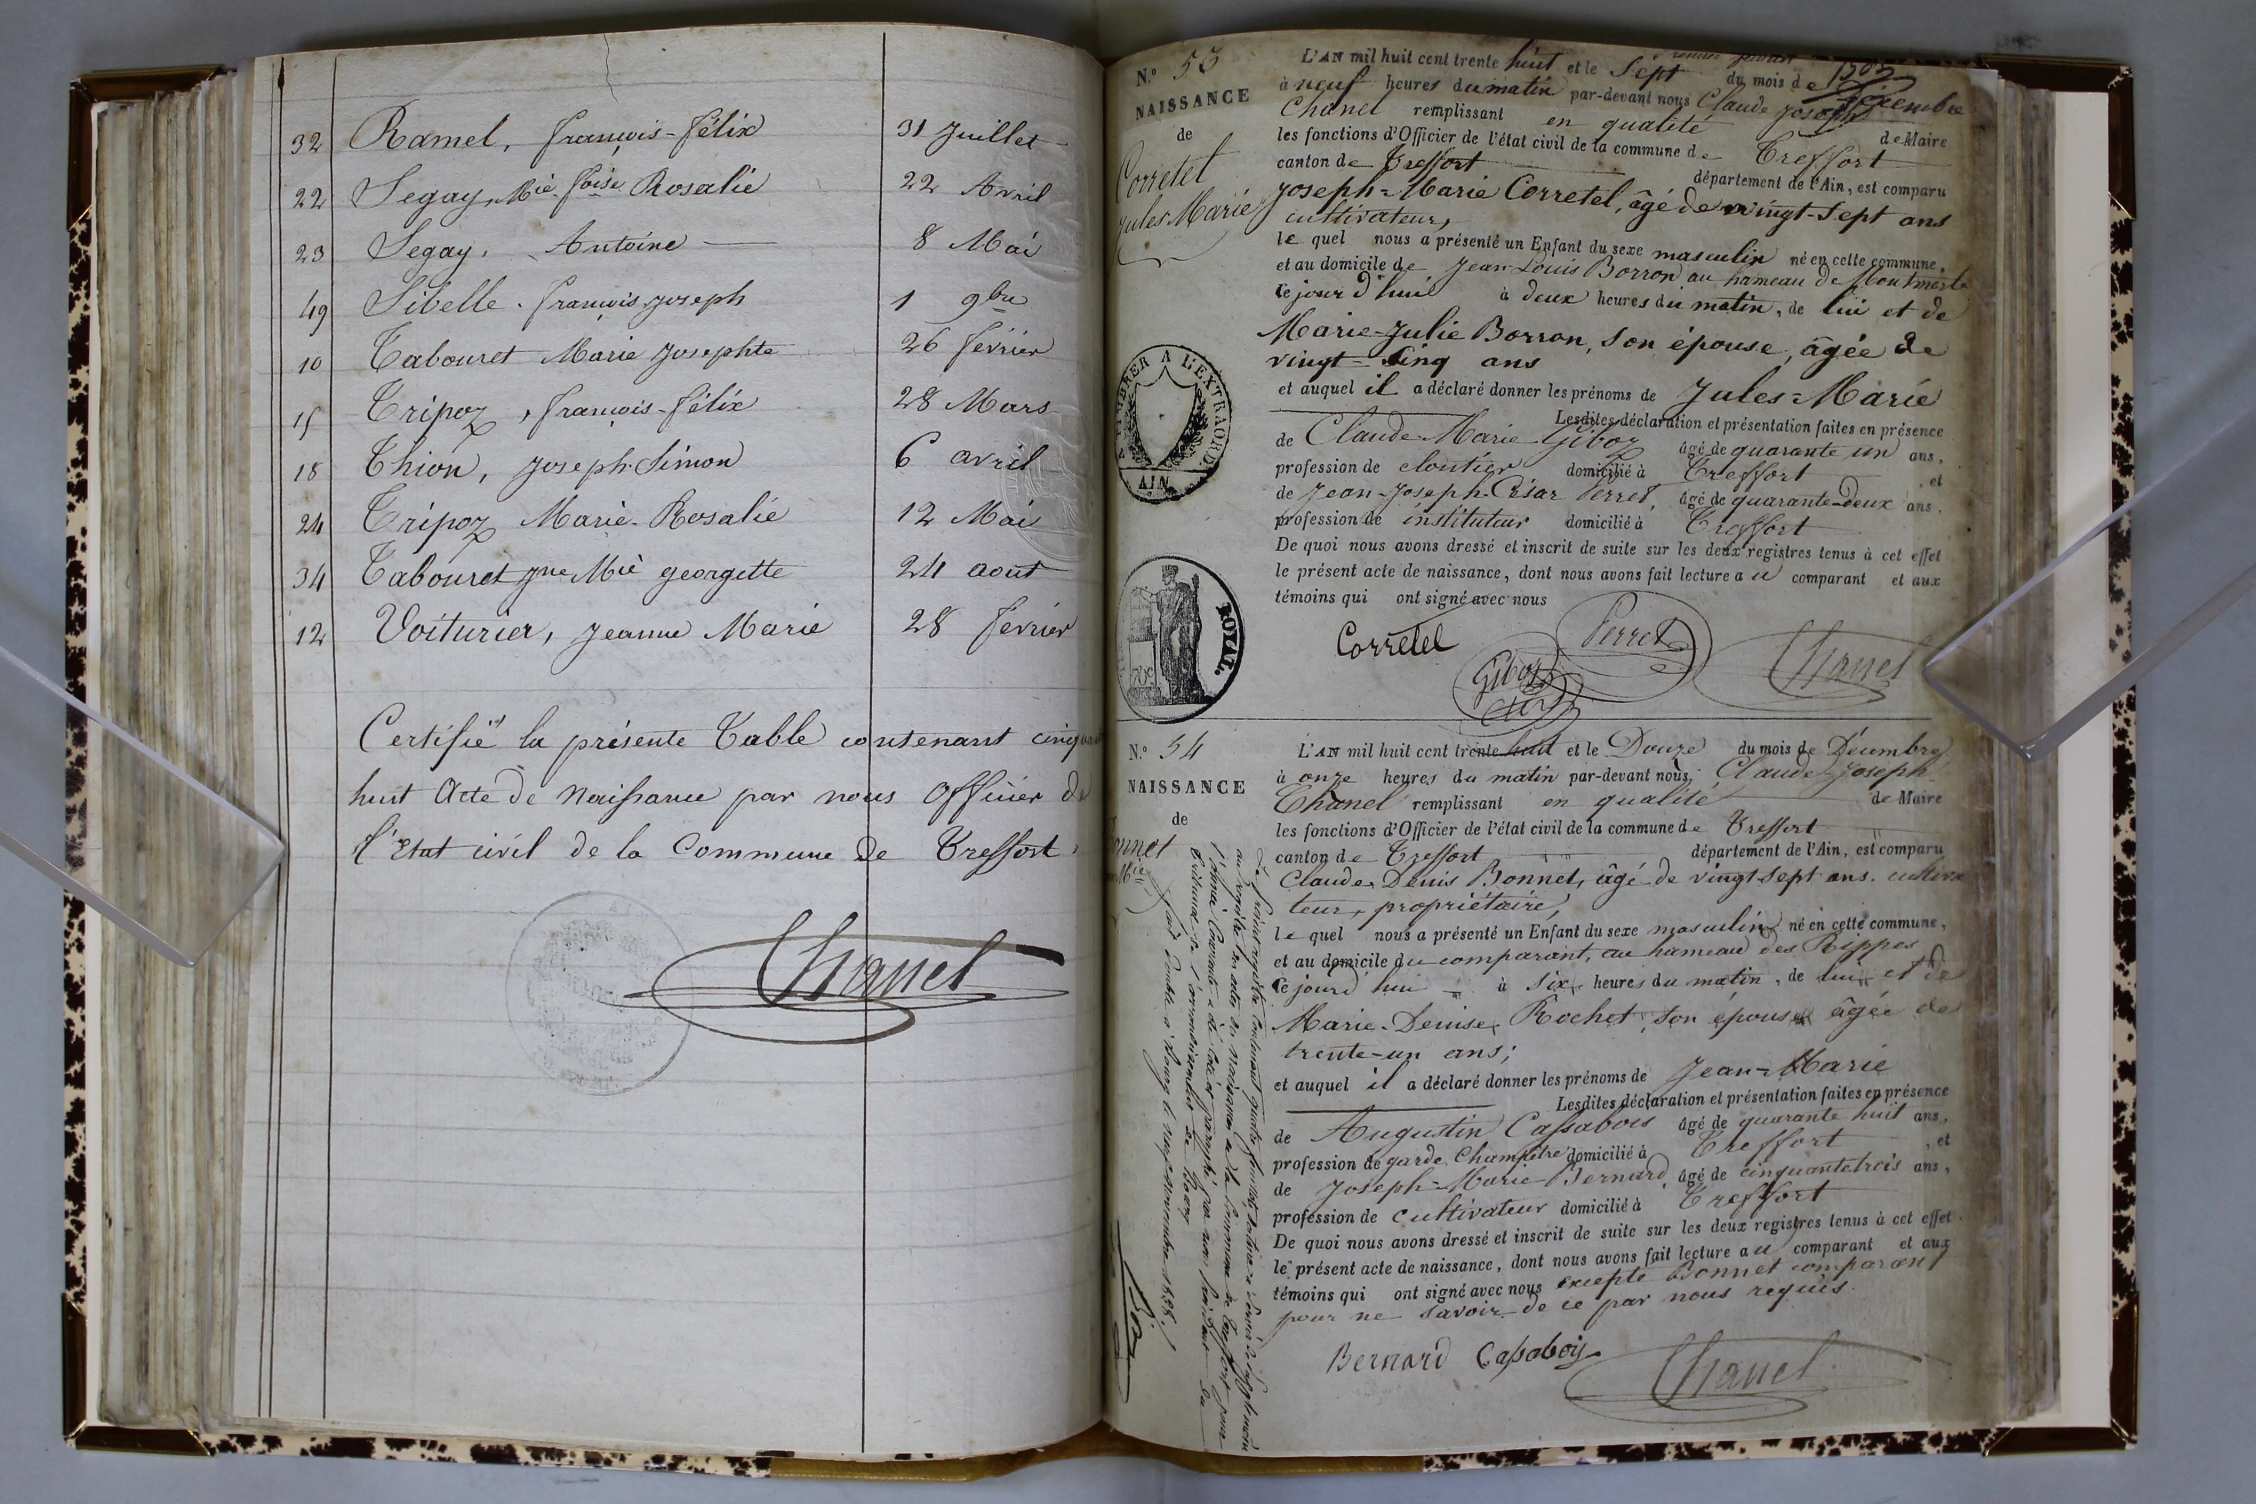 32 Ramel, françois-félix 31 Juillet
22 Segay, Mie foise Rosalie 22 Avril
23 Segay, Antoine 8 Mai
49 Sibelle, françois joseph 1 9bre
10 Tabouret Marie Josephte 26 février
15 Tripoz, françois-félix 28 Mars
18 Thion, Joseph Simon 6 avril
24 Tripoz Marie-Rosalie 12 Mai
34 Tabouret jne Mie georgette 24 aout
12 Voiturier, jeanne Marie 28 fevrier
Certifié la présente Table contenant
huit Acte de Naissance par nous Officier de
l'Etat civil de la Commune de Treffort,
Chanel
N.º 53
NAISSANCE
de
Corretel
Jules Marie
TIMBRER A L'EXTRAORD.
AIN
ROYAL.
L'AN mil huit cent trente huit et le Sept du mois de Décembre
à neuf heures du matin par-devant nous Claude Joseph
Chanel remplissant en qualité de Maire
les fonctions d'Officier de l'état civil de la commune de Treffort
canton de Treffort département de l'Ain, est comparu
Joseph-Marie Corretel, âgé de vingt-sept ans
cultivateur,
le quel nous a présenté un Enfant du sexe masculin né en cette commune,
et au domicile de Jean Louis Borron, au hameau de
ce jour d'hui à deux heures du matin, de lui et de
Marie-Julie Borron, son épouse, âgée de
vingt-cinq ans
et auquel il a déclaré donner les prénoms de Jules-Marie
Lesdites déclaration et présentation faites en présence
de Claude-Marie Giboz âgé de quarante un ans,
profession de cloutier domicilié à Treffort et
de Jean-Joseph-César Perret, âgé de quarante-deux ans.
profession de instituteur domicilié à Treffort
De quoi nous avons dressé et inscrit de suite sur les deux registres tenus à cet effet
le présent acte de naissance, dont nous avons fait lecture au comparant et aux
témoins qui ont signé avec nous
Corretel Giboz Perret Chanel
N.º 54
NAISSANCE
de
Bonnet
L'AN mil huit cent trente huit et le Douze du mois de Décembre
à onze heures du matin par-devant nous, Claude-Joseph
Chanel remplissant en qualité de Maire
les fonctions d'Officier de l'état civil de la commune de Treffort
canton de Treffort département de l'Ain, est comparu
Claude-Denis Bonnet, âgé de vingt sept ans. cultiva
teur, propriétaire,
le quel nous a présenté un Enfant du sexe masculin né en cette commune,
et au domicile du comparant, au hameau des Rippes
ce jourd'hui à six heures du matin, de lui et de
Marie-Denise Rochet, son épouse âgée de
trente-un ans;
et auquel il a déclaré donner les prénoms de Jean-Marie
Lesdites déclaration et présentation faites en présence
de Augustin Cassabois âgé de quarante huit ans,
profession de garde Champêtre domicilié à Treffort, et
de Joseph-Marie Bernard, âgé de cinquante trois ans,
profession de cultivateur domicilié à Treffort
De quoi nous avons dressé et inscrit de suite sur les deux registres tenus à cet effet
le présent acte de naissance, dont nous avons fait lecture au comparant et aux
témoins qui ont signé avec nous excepté Bonnet comparant
pour ne savoir de ce par nous requis.
Bernard Cassabois Chanel